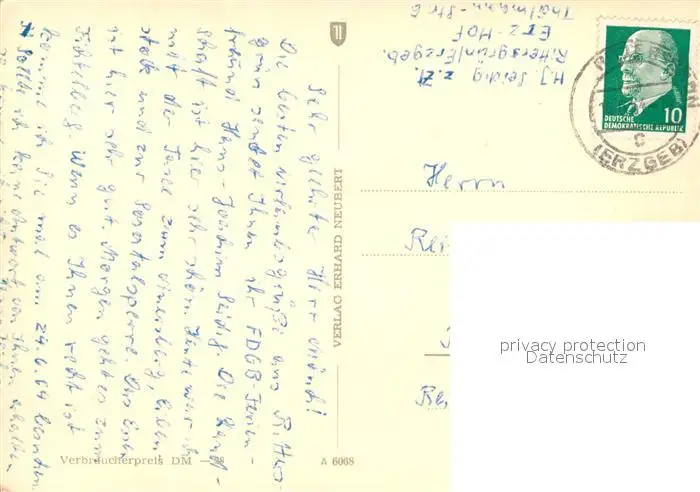 Sehr geehrter Herr
Die besten Urlaubsgrüße aus Ritters-
grün sendet Ihnen Ihr FDGB-Ferien-
freund Hans-Joachim Seidig. Die Land-
schaft ist hier sehr schön. Heute war ich
mit der Taxe zum
stock und zur Sosatalsperre. Das Essen
ist hier sehr gut. Morgen geht es zum
Fichtelberg. Wenn es Ihnen recht ist
komme ich Sie mal am 24.6.64 besuchen.
Sollte ich keine Antwort von Ihnen erhalten
H.J. Seidig z.Zt.
Rittersgrün/Erzgeb.
Erz-Hof
Thälmann-Str. 6
VERLAG ERHARD NEUBERT
DEUTSCHE
DEMOKRATISCHE REPUBLIK
10
c
(ERZGEB)
Herrn
Verbraucherpreis DM
A 6068
privacy protection
Datenschutz